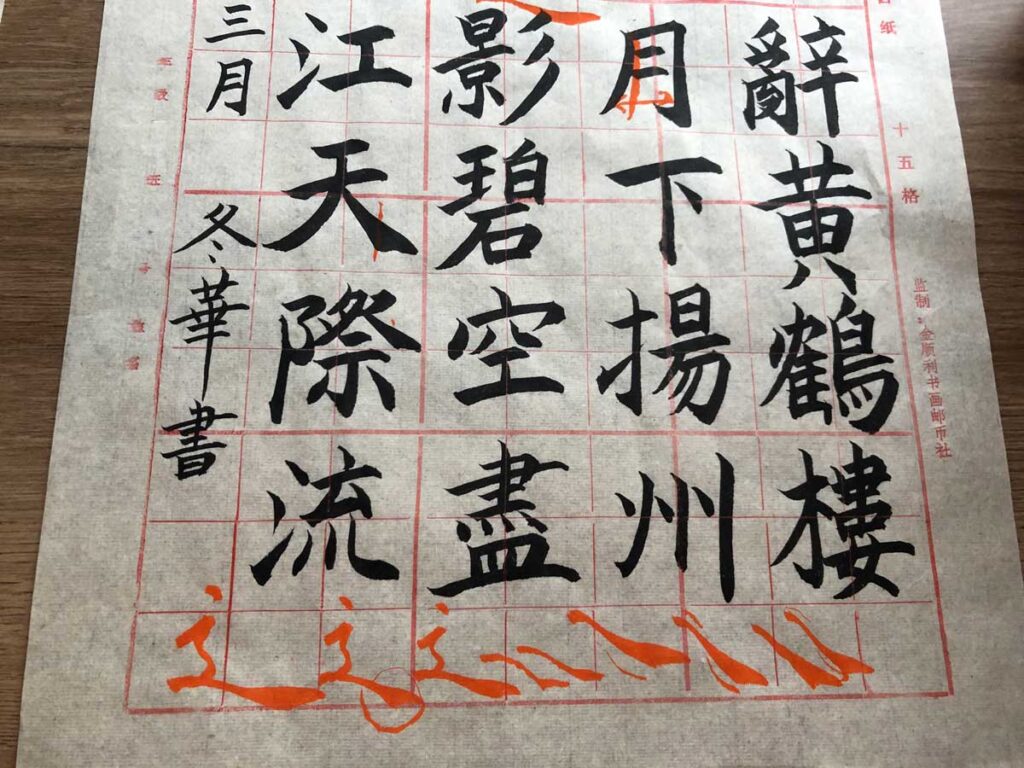 纸 十五格
监制:金顺利书画邮币社
辭黄鶴樓
月下揚州
影碧空盡
江天際流
三月 冬華書